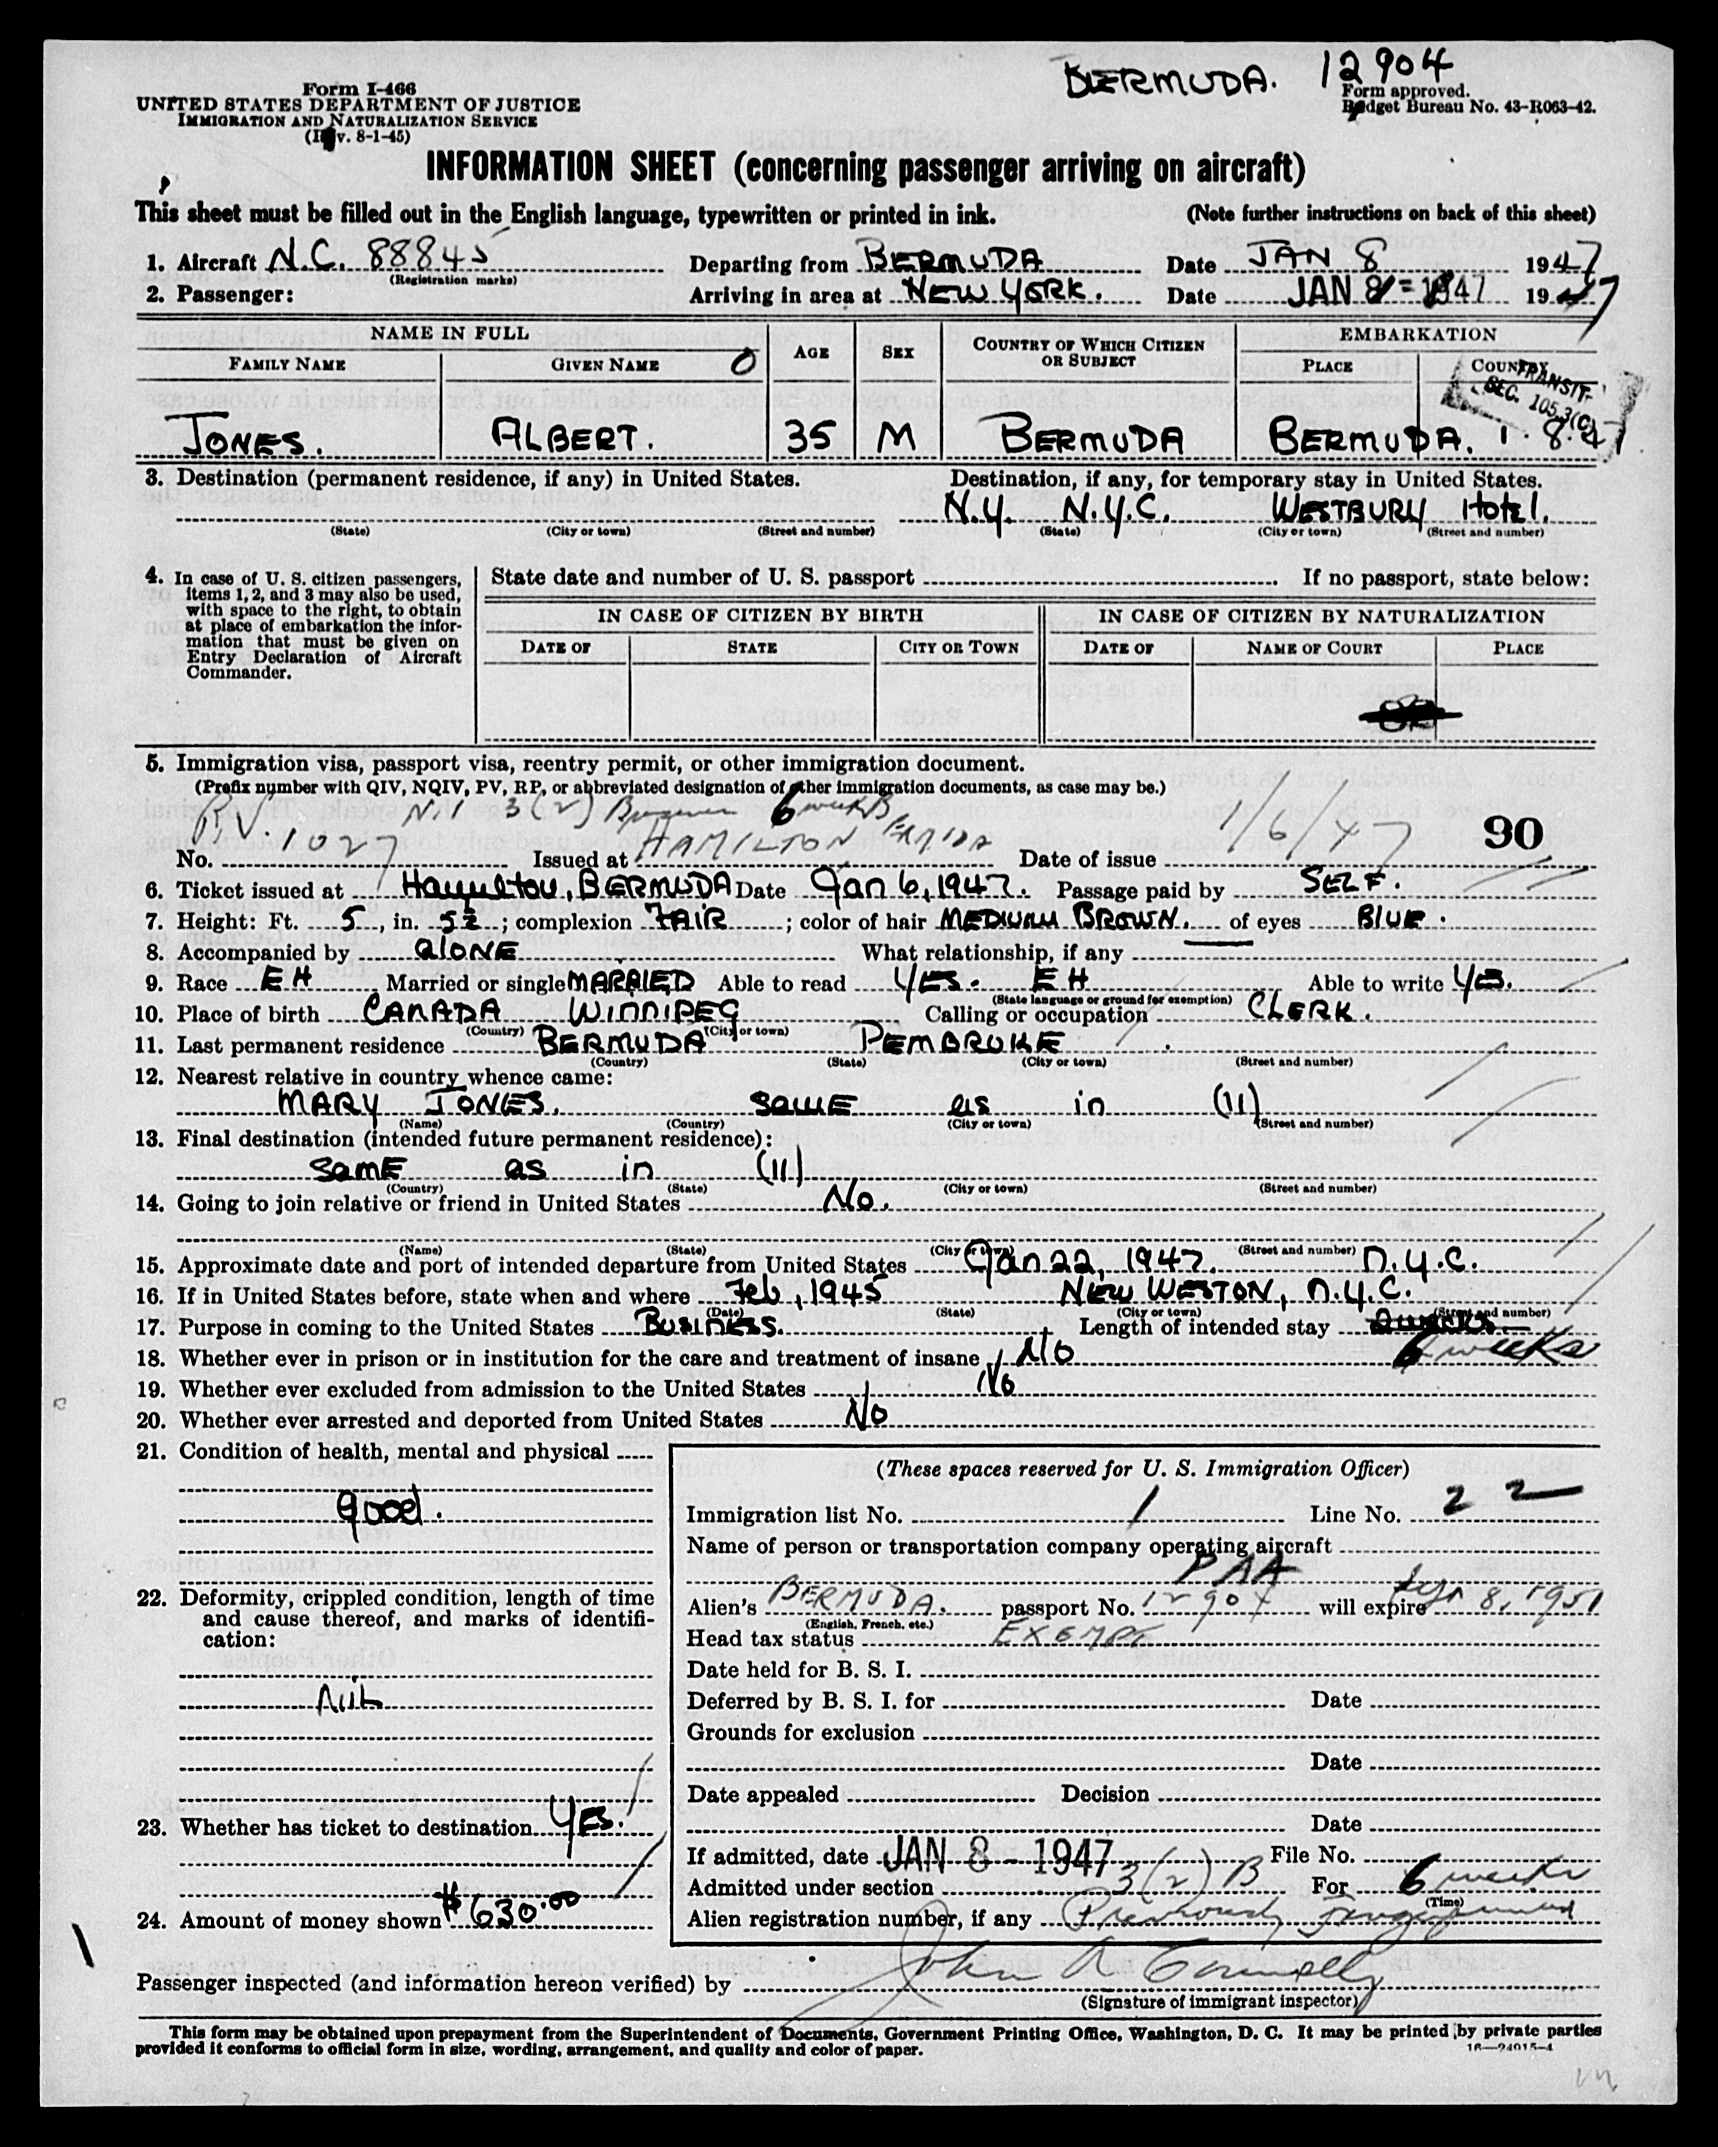 BERMUDA. 12904
Form I-466
UNITED STATES DEPARTMENT OF JUSTICE
IMMIGRATION AND NATURALIZATION SERVICE
(Rev. 8-1-45)
Form approved.
Budget Bureau No. 43-R063-42.
INFORMATION SHEET (concerning passenger arriving on aircraft)
This sheet must be filled out in the English language, typewritten or printed in ink. (Note further instructions on back of this sheet)
1. Aircraft N.C. 88845 Departing from BERMUDA Date JAN 8 1947
(Registration marks)
2. Passenger: Arriving in area at NEW YORK. Date JAN 8 - 1947 1947
NAME IN FULL AGE SEX COUNTRY OF WHICH CITIZEN OR SUBJECT EMBARKATION
FAMILY NAME GIVEN NAME O PLACE COUNTRY
TRANSIT-
SEC. 105.3(C)
JONES. ALBERT. 35 M BERMUDA BERMUDA. 1. 8. 47
3. Destination (permanent residence, if any) in United States. Destination, if any, for temporary stay in United States.
N.Y. N.Y.C. WESTBURY Hotel.
(State) (City or town) (Street and number) (State) (City or town) (Street and number)
4. In case of U. S. citizen passengers, items 1, 2, and 3 may also be used, with space to the right, to obtain at place of embarkation the information that must be given on Entry Declaration of Aircraft Commander.
State date and number of U. S. passport If no passport, state below:
IN CASE OF CITIZEN BY BIRTH IN CASE OF CITIZEN BY NATURALIZATION
DATE OF STATE CITY OR TOWN DATE OF NAME OF COURT PLACE
5. Immigration visa, passport visa, reentry permit, or other immigration document.
(Prefix number with QIV, NQIV, PV, RP, or abbreviated designation of other immigration documents, as case may be.)
3(2) 6 weeks
No. P.V. 1027 Issued at HAMILTON BERMUDA Date of issue 1/6/47 90
6. Ticket issued at Hamilton, BERMUDA Date Jan 6, 1947. Passage paid by SELF.
7. Height: Ft. 5, in. 5½; complexion FAIR; color of hair MEDIUM BROWN. of eyes BLUE.
8. Accompanied by alONE What relationship, if any
9. Race EH Married or single MARRIED Able to read YES. EH Able to write YES.
(State language or ground for exemption)
10. Place of birth CANADA WINNIPEG Calling or occupation CLERK.
(Country) (City or town)
11. Last permanent residence BERMUDA PEMBROKE
(Country) (State) (City or town) (Street and number)
12. Nearest relative in country whence came:
MARY JONES. same as in (11)
(Name) (Country) (City or town) (Street and number)
13. Final destination (intended future permanent residence):
same as in (11)
(Country) (State) (City or town) (Street and number)
14. Going to join relative or friend in United States No.
(Name) (State) (City or town) (Street and number)
15. Approximate date and port of intended departure from United States Jan 22, 1947. N.Y.C.
16. If in United States before, state when and where Feb, 1945 NEW WESTON, N.Y.C.
(Date) (State) (City or town) (Street and number)
17. Purpose in coming to the United States BUSINESS. Length of intended stay 2 weeks.
18. Whether ever in prison or in institution for the care and treatment of insane No 6 weeks
19. Whether ever excluded from admission to the United States No
20. Whether ever arrested and deported from United States No
21. Condition of health, mental and physical
good.
22. Deformity, crippled condition, length of time and cause thereof, and marks of identification:
Nil
23. Whether has ticket to destination YES.
24. Amount of money shown $630.00
(These spaces reserved for U. S. Immigration Officer)
Immigration list No. 1 Line No. 22
Name of person or transportation company operating aircraft
PAA
Alien's BERMUDA. passport No. 12904 will expire 8, 1951
(English, French, etc.)
Head tax status EXEMPT
Date held for B. S. I.
Deferred by B. S. I. for Date
Grounds for exclusion
Date
Date appealed Decision
Date
If admitted, date JAN 8 - 1947 File No.
Admitted under section 3(2) B For 6 weeks
(Time)
Alien registration number, if any Previously fingerprinted
Passenger inspected (and information hereon verified) by John A Connelly
(Signature of immigrant inspector)
This form may be obtained upon prepayment from the Superintendent of Documents, Government Printing Office, Washington, D. C. It may be printed by private parties
provided it conforms to official form in size, wording, arrangement, and quality and color of paper.
16—24015-4